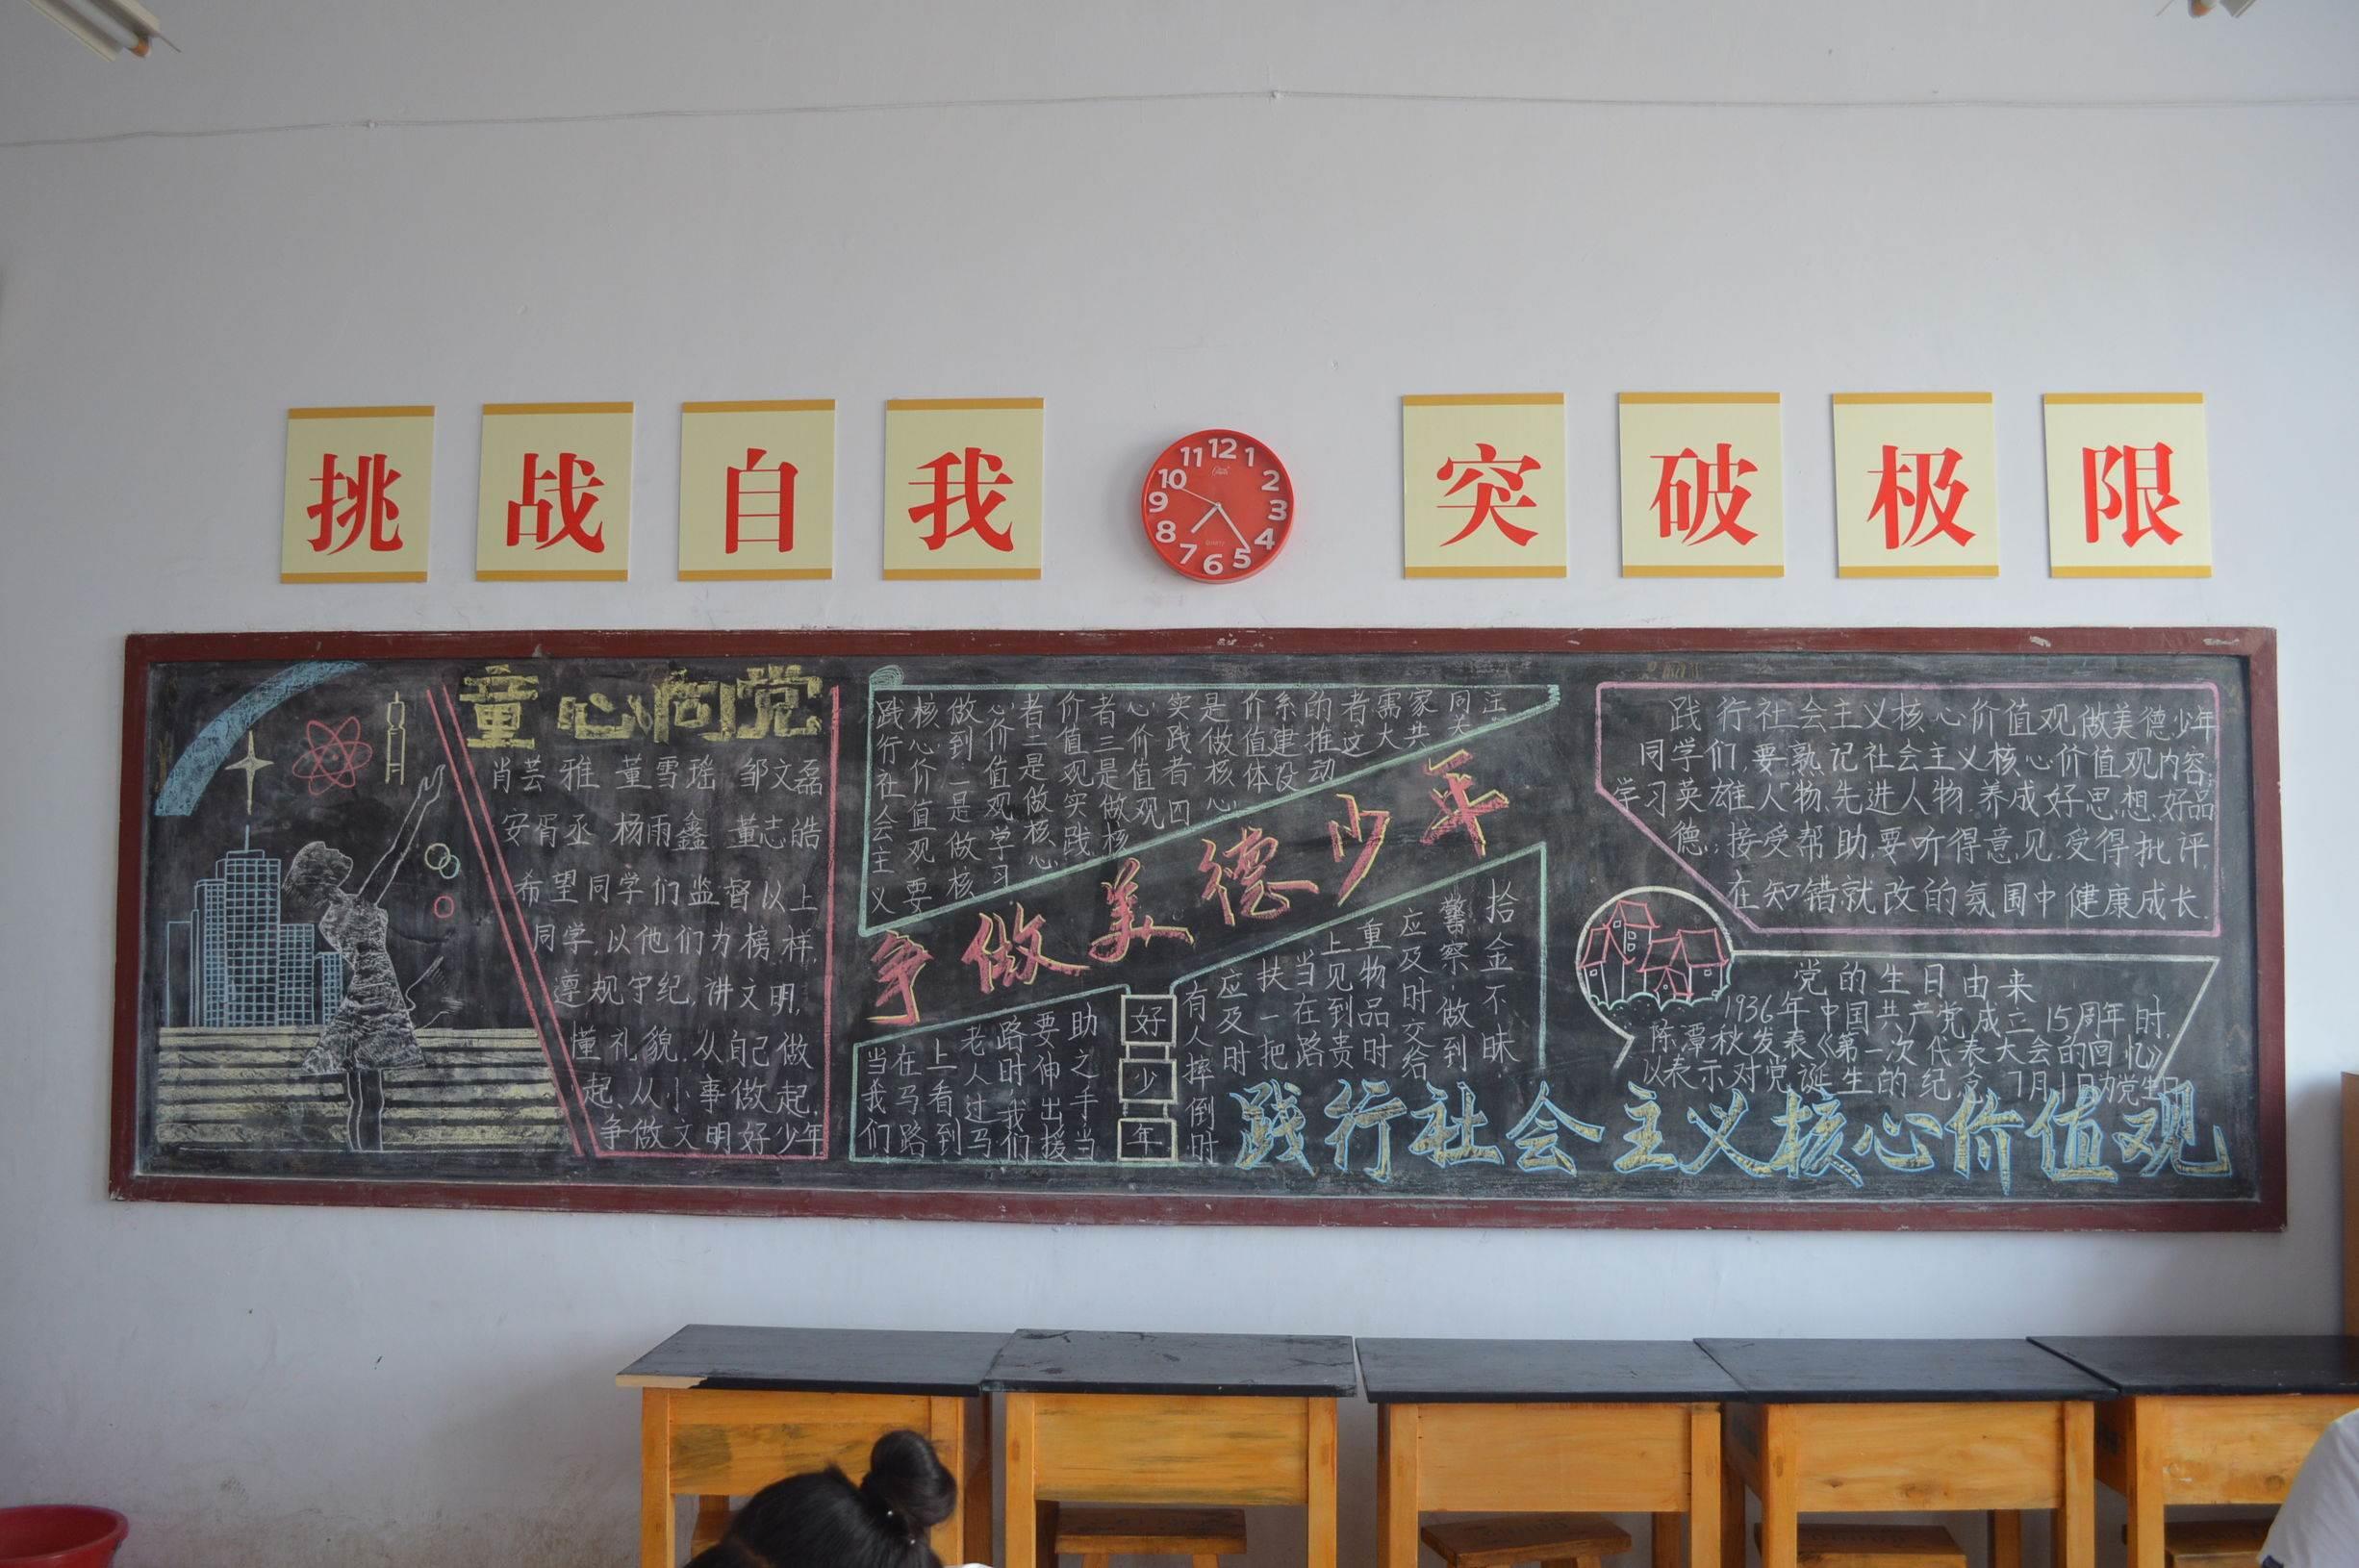 挑战自我
突破极限
12 1 2 3 4 5 6 7 8 9 10 11
QUARTZ
童心向党
肖芸雅 董雪瑶 邹文磊
安胥丞 杨雨鑫 董志皓
希望同学们监督以上
同学,以他们为榜样,
遵规守纪,讲文明,
懂礼貌.从自己做
起、从小事做起,
争做文明好少年
践行社会主义
核心价值观要
做到一是做核
心价值观学习
者二是做核心
价值观实践
者三是做核
心价值观
实践者四
是做核心
价值体
系建设
的推动
者这
需大
家共
同关
注。
争做美德少年
当我们
在马路
上看到
老人过马
路时,我们
要伸出援
助之手当
好少年
有人摔倒时
应及时
扶一把
当在路
上见到贵
重物品时
应及时交给
警察.做到
拾金不昧
践行社会主义核心价值观做美德少年
同学们,要熟记社会主义核心价值观内容;
学习英雄人物、先进人物.养成好思想、好品
德;接受帮助,要听得意见.受得批评,
在知错就改的氛围中健康成长.
党的生日由来
1936年中国共产党成立15周年时,
陈潭秋发表《第一次代表大会的回忆》
以表示对党诞生的纪念 7月1日为党生日
践行社会主义核心价值观